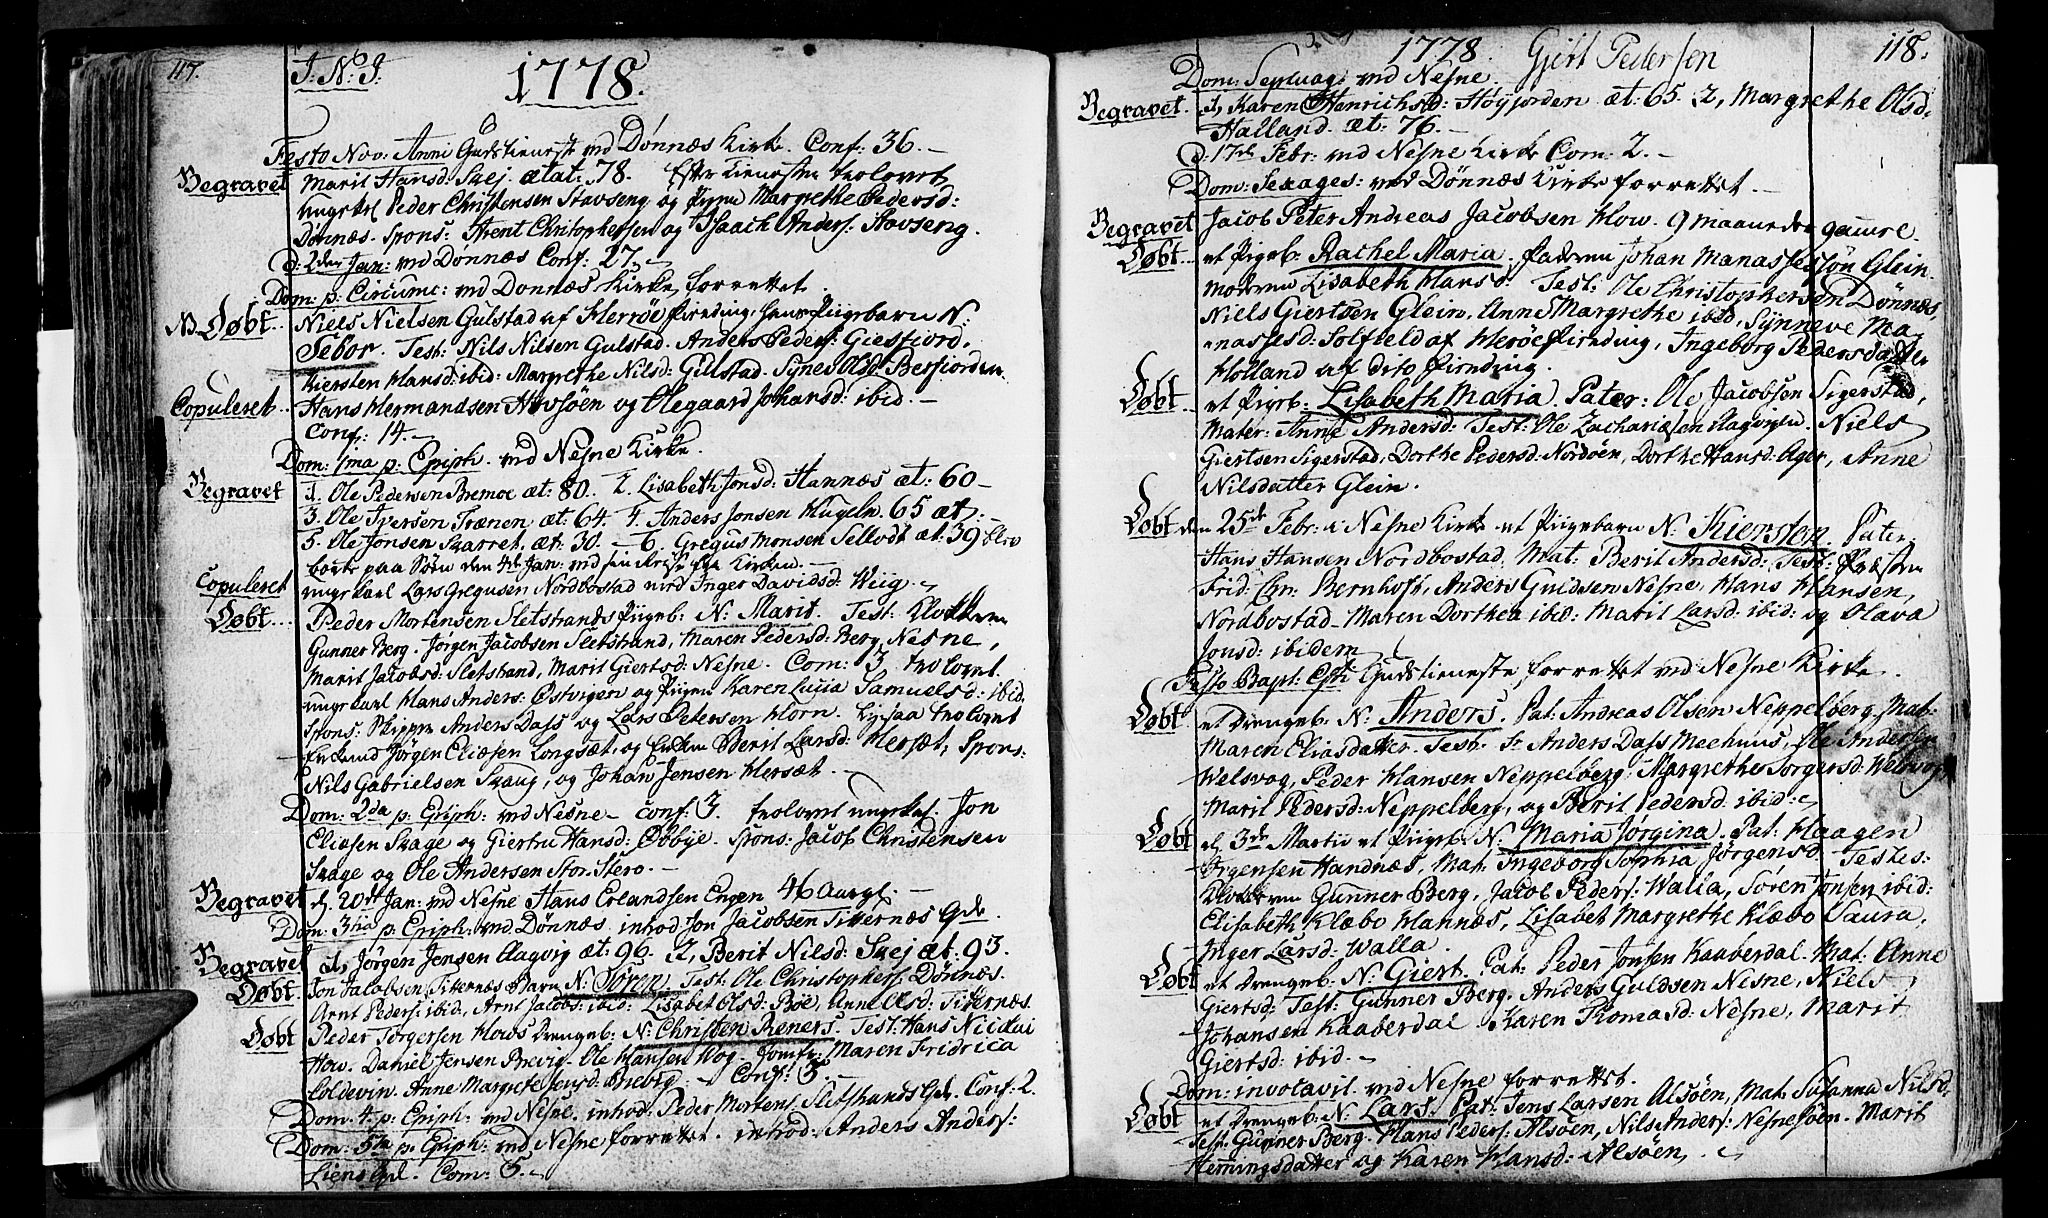 117.
J: N: J:
1778.
Festo Nov: Anni Gudstieneste ved Dønnæs Kirke. Conf: 36.
Begravet Marit Hansd: Svej. ætat: 78. Efter tienesten trolovet
ungkarl Peder Christensen Stavseng og Pigen Margrethe Pedersd:
Dønnæs. Spons: Arent Christophersen og Isaach Anders: Stavseng.
d: 2den Jan: ved Dønnæs Conf: 27.
Dom: p: Circumc: ved Dønnæs Kirke forrettet.
NB Døbt Niels Nielsen Gulstad af Herrøe Pirnding: hans Pigebarn N:
Sebor. Test: Nils Nilsen Gulstad. Anders Peders: Giesfiord.
Kiersten Hansd: ibid: Margrethe Nilsd: Gulstad. Synev Olsd: Besfiorden.
Copuleret Hans Hermandsen Havsøen og Olegaard Johansd: ibid.
Conf: 14.
Dom: 1ma p: Epiph. ved Nesne Kirke.
Begravet 1. Ole Pedersen Bremoe æt: 80. 2. Lisabeth Jonsd: Hannæs æt: 60
3. Ole Iversen Trænen æt: 64. 4. Anders Jonsen Hugeln. 65 æt:
5. Ole Jonsen Skarret. æt: 30. 6. Gregus Monsen Selvodt æt: 39 blev
borte paa Søen den 4de Jan: ved sin Reise fra Kirken.
Copuleret ungkarl Lars Gregusen Nordbostad med Inger Davidsd: Wiig.
Døbt Peder Mortensen Sletstrands Pigeb: N: Marit. Test: Klokkeren
Gunner Berg. Jørgen Jacobsen Sletstrand, Maren Pedersd: Berg, Nesne,
Marit Jacobsd: Sletstrand, Marit Giertsd: Nesne. Com: 3. trolovet
ungkarl Hans Anders: Østvigen og Pigen Karen Lucia Samuelsd: ibid.
Spons: Skipper Anders Dass og Lars Petersen Horn. Ligesaa trolovet
Enkemand Jørgen Eliæsen Longsæt, og Enken Berit Larsd: Hersæt, Spons:
Nils Gabrielsen Skaug, og Johan Jensen Hersæt.
Dom: 2da p: Epiph: ved Nesne conf: 3. trolovet ungkarl Jon
Eliæsen Skage og Giertru Hansd: Øebye. Spons: Jacob Christensen
Skage og Ole Andersen Stor-Stero.
Begravet d. 20de Jan: ved Nesne Hans Erlandsen Engen 46 Aargl.
Dom: 3tia p: Epiph: ved Dønnæs inhod Jon Jacobsen Titternæs Qde.
Begravet 1, Jørgen Jensen Aagvig æt: 96. 2, Berit Nilsd: Svej æt: 93.
Døbt Jon Jacobsen Titernæs Barn N: Søren, Test: Ole Christophers: Dønnæs.
Arnt Peders: ibid, Arnt Jacobs: ibid: Lisabet Olsd: Bøe, Anne Olsd: Titernæs.
Døbt Peder Jørgersen Hows Drengeb: N: Christen Reners. Test: Hans Nicolai
How. Daniel Jensen Brevig. Ole Hansen Wog. Jomfr: Maren Fridrica
Coldevin. Anne Margrete Jensd: Brevig. Conf: 3.
Dom: 4. p: Epiph: ved Nesne. inhod: Peder Mortens: Sletstrands Qde. Conf: 2.
Dom: 5ta p: Epiph: ved Nesne forrettet. inhod: Anders Anders:
Liens Qd. Com: 5.
1778. Gjert Pedersen 118.
Dom: Septuag: ved Nesne
Begravet 1, Karen Henrichsd: Høyjorden æt: 65. 2, Margrethe Olsd:
Halland. æt: 76.
d: 17de Febr: ved Nesne Kirke Com: 2.
Dom: Sexages: ved Dønnæs Kirke forrettet.
Begravet Jacob Peter Andreas Jacobsen How. 9 maaneder gamle.
Døbt et Pigeb: Rachel Maria. Faderen Johan Manassessøn Glein.
moderen Lisabeth Hansd: Test: Ole Christophersen Dønnæs,
Niels Giertsen Glein, Anne Margrethe ibid, Synneve Ma-
nassesd: Solfield af Herøe Pirnding, Ingeborg Pedersdatter
Holland af dito Pirnding.
Døbt et Pigeb: Lisabeth Maria. Pater: Ole Jacobsen Sigerstad,
Mater: Anne Andersd: Test: Ole Zachariæsen Aagvigen. Niels
Giertsen Sigerstad, Dorthe Pedersd: Nordøen, Dorthe Hansd: Ager, Anne
Nilsdatter Glein.
Døbt den 25de Febr: i Nesne Kirke et Pigebarn N: Kiersten. Pater
Hans Hansen Nordbostad, Mat: Berit Andersd: Test: Præsten
Frid: Chr: Bernhoft, Anders Guldsen Nesne, Hans Hansen,
Nordbostad. Maren Dorthea ibid: Marit Larsd: ibid: og Olava
Jonsd: ibidem.
Festo Bapt: Chti Gudstieneste forrettet ved Nesne Kirke.
Døbt et Drengeb: N: Anders. Pat: Andreas Olsen Neppelberg. Mat:
Maren Eliasdatter. Test. Sr. Anders Dass Meehuus, Ole Andersen
Welsvog, Peder Hansen Neppelberg, Margrethe Jørgersd: Welsvog
Marit Pedersd: Neppelberg, og Berit Pedersd: ibid:
Døbt d. 3de Martii et Pigeb: N: Maria Jørgina. Pat: Haagen
Jrgensen Handnæs, Mat. Ingeborg Sophia Jørgensd: Testes:
Klokkeren Gunner Berg, Jacob Peders: Walla, Søren Jonsen ibid:
Elisabeth Klæbo Hannæs, Lisabet Margrethe Klæbo Saura,
Inger Larsd: Walla.
Døbt et Drengeb: N. Giert. Pat: Peder Jonsen Kaaberdal. Mat: Anne
Giertsd: Test: Gunner Berg. Anders Guldsen Nesne, Niels
Johansen Kaaberdal Karen Thomasd: Nesne, Marit
Giertsd: ibid.
Dom: invocavit ved Nesne forrettet.
Døbt et Drengeb: N. Lars. Pat: Jens Larsen Alsøen, Mat: Susanna Nilsd:
Test: Gunner Berg. Hans Peders: Alsøen, Nils Anders: Nesnesøen. Marit
Hemmingsdatter og Karen Hansd: Alsøen.